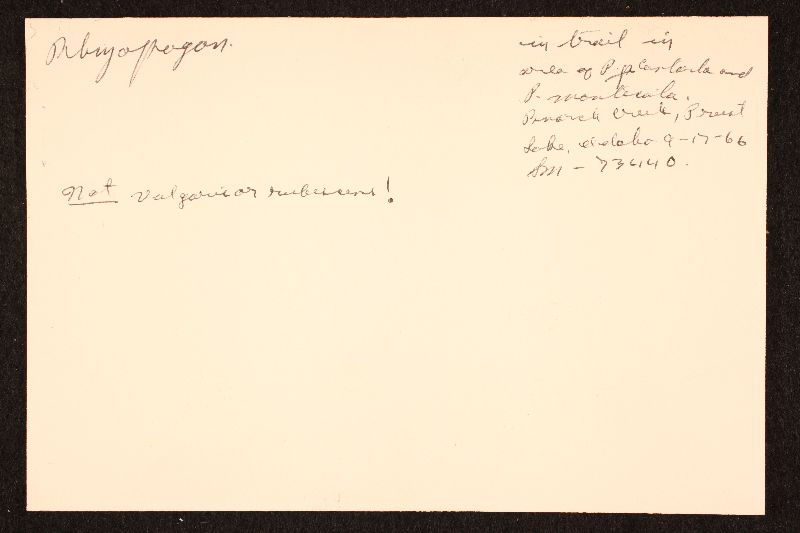 Rhizopogon.
in trail in
area of P. contorta and
P. monticola.
Creek, Priest
Lake, Idaho 9-17-66
Sm - 73440.
Not vulgaris or rubescens!